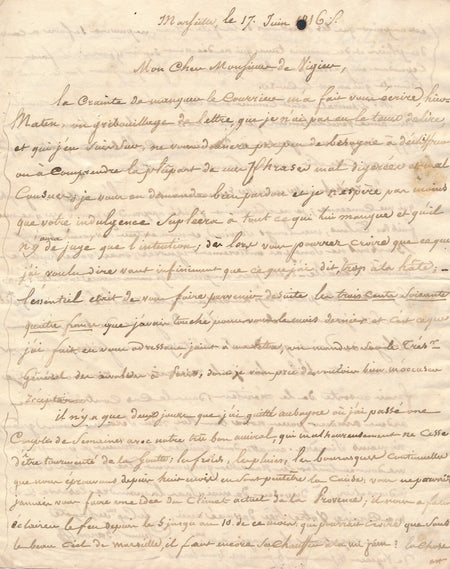 Marseille, le 17. Juin 1816
Mon Cher Monsieur de Vigier,
La Crainte de manquer le Courrier m'a fait vous écrire hier
Matin, un gribouillage de lettre, que je n'ai pas eu le tems de lire
et qui j'en suis sur, ne vous donnera pas peu de besogne à déchiffrer
ou à Comprendre la plupart de mes Phrases mal digerées et mal
Cousues; je vous en demande bien pardon et je n'espère pas moins
que votre indulgence Supléera à tout ce qui lui manque et qu'elle
n'y aura de juge que l'intention; dès lors vous pourrez croire que ce que
j'ai voulu dire vaut infiniment que ce que j'ai dit trop à la hâte;
l'essentiel était de vous faire parvenir de suite les trois cents soixante
quatre francs que j'avais touché pour vous le mois dernier et c'est ce que
j'ai fait en vous adressant joint à ma lettre, un mandat sur le Trés.r
Général des invalides à Paris, dont je vous prie de vouloir bien m'accuser
réception.
il n'y a que deux jours que j'ai quitté aubagne où j'ai passé une
Couple de Semaines avec notre très bon amiral, qui malheureusement ne Cesse
d'être tourmenté de la Goutte; les froids, les pluies, les bourrasques Continuelles
que nous éprouvons depuis huit mois en sont peutêtre la Cause, vous ne pourriez
jamais vous faire une idée du Climat actuel de la Provence, il nous a fallu
du feu depuis le 5 jusqu'au 10. de ce mois; qui pourrait croire que sous
le beau Ciel de marseille, il faut encore se chauffer à la mi juin? la Chose